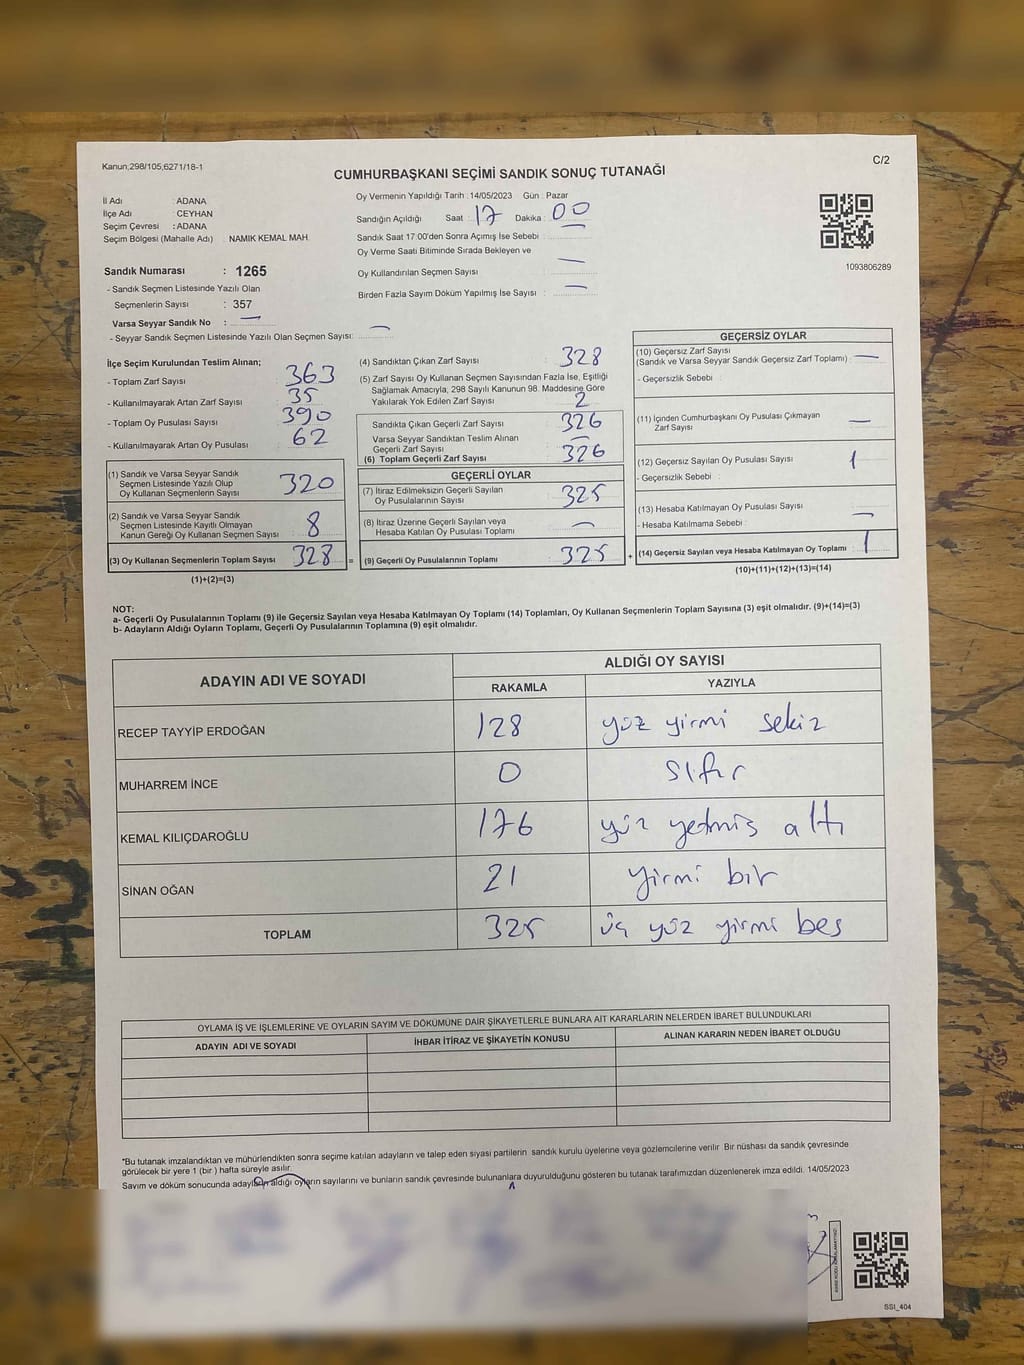 Kanun;298/105,6271/18-1
C/2
CUMHURBAŞKANI SEÇİMİ SANDIK SONUÇ TUTANAĞI
İl Adı : ADANA
İlçe Adı : CEYHAN
Seçim Çevresi : ADANA
Seçim Bölgesi (Mahalle Adı) : NAMIK KEMAL MAH.
Sandık Numarası : 1265
- Sandık Seçmen Listesinde Yazılı Olan
Seçmenlerin Sayısı : 357
Varsa Seyyar Sandık No : —
- Seyyar Sandık Seçmen Listesinde Yazılı Olan Seçmen Sayısı: —
Oy Vermenin Yapıldığı Tarih : 14/05/2023 Gün : Pazar
Sandığın Açıldığı Saat : 17 Dakika : 00
Sandık Saat 17:00'den Sonra Açımış İse Sebebi : —
Oy Verme Saati Bitiminde Sırada Bekleyen ve
Oy Kullandırılan Seçmen Sayısı —
Birden Fazla Sayım Döküm Yapılmış İse Sayısı : —
1093806289
İlçe Seçim Kurulundan Teslim Alınan;
- Toplam Zarf Sayısı : 363
- Kullanılmayarak Artan Zarf Sayısı : 35
- Toplam Oy Pusulası Sayısı : 390
- Kullanılmayarak Artan Oy Pusulası : 62
(1) Sandık ve Varsa Seyyar Sandık
Seçmen Listesinde Yazılı Olup
Oy Kullanan Seçmenlerin Sayısı : 320
(2) Sandık ve Varsa Seyyar Sandık
Seçmen Listesinde Kayıtlı Olmayan
Kanun Gereği Oy Kullanan Seçmen Sayısı : 8
(3) Oy Kullanan Seçmenlerin Toplam Sayısı : 328
(1)+(2)=(3)
(4) Sandıktan Çıkan Zarf Sayısı : 328
(5) Zarf Sayısı Oy Kullanan Seçmen Sayısından Fazla İse, Eşitliği
Sağlamak Amacıyla, 298 Sayılı Kanunun 98. Maddesine Göre
Yakılarak Yok Edilen Zarf Sayısı : 2
Sandıkta Çıkan Geçerli Zarf Sayısı : 326
Varsa Seyyar Sandıktan Teslim Alınan
Geçerli Zarf Sayısı : —
(6) Toplam Geçerli Zarf Sayısı : 326
GEÇERLİ OYLAR
(7) İtiraz Edilmeksizin Geçerli Sayılan
Oy Pusulalarının Sayısı : 325
(8) İtiraz Üzerine Geçerli Sayılan veya
Hesaba Katılan Oy Pusulaları Toplamı : —
= (9) Geçerli Oy Pusulalarının Toplamı : 325
GEÇERSİZ OYLAR
(10) Geçersiz Zarf Sayısı
(Sandık ve Varsa Seyyar Sandık Geçersiz Zarf Toplamı) : —
- Geçersizlik Sebebi :
(11) İçinden Cumhurbaşkanı Oy Pusulası Çıkmayan
Zarf Sayısı : —
(12) Geçersiz Sayılan Oy Pusulası Sayısı : 1
- Geçersizlik Sebebi :
(13) Hesaba Katılmayan Oy Pusulası Sayısı : —
- Hesaba Katılmama Sebebi :
+ (14) Geçersiz Sayılan veya Hesaba Katılmayan Oy Toplamı : 1
(10)+(11)+(12)+(13)=(14)
NOT:
a- Geçerli Oy Pusulalarının Toplamı (9) ile Geçersiz Sayılan veya Hesaba Katılmayan Oy Toplamı (14) Toplamları, Oy Kullanan Seçmenlerin Toplam Sayısına (3) eşit olmalıdır. (9)+(14)=(3)
b- Adayların Aldığı Oyların Toplamı, Geçerli Oy Pusulalarının Toplamına (9) eşit olmalıdır.
ADAYIN ADI VE SOYADI
ALDIĞI OY SAYISI
RAKAMLA YAZIYLA
RECEP TAYYİP ERDOĞAN 128 yüz yirmi sekiz
MUHARREM İNCE 0 sıfır
KEMAL KILIÇDAROĞLU 176 yüz yetmiş altı
SİNAN OĞAN 21 yirmi bir
TOPLAM 325 üç yüz yirmi beş
OYLAMA İŞ VE İŞLEMLERİNE VE OYLARIN SAYIM VE DÖKÜMÜNE DAİR ŞİKAYETLERLE BUNLARA AİT KARARLARIN NELERDEN İBARET BULUNDUKLARI
ADAYIN ADI VE SOYADI İHBAR İTİRAZ VE ŞİKAYETİN KONUSU ALINAN KARARIN NEDEN İBARET OLDUĞU
*Bu tutanak imzalandıktan ve mühürlendikten sonra seçime katılan adayların ve talep eden siyasi partilerin sandık kurulu üyelerine veya gözlemcilerine verilir. Bir nüshası da sandık çevresinde
görülecek bir yere 1 (bir) hafta süreyle asılır.
Sayım ve döküm sonucunda adayların aldığı oyların sayılarını ve bunların sandık çevresinde bulunanlara duyurulduğunu gösteren bu tutanak tarafımızdan düzenlenerek imza edildi. 14/05/2023
SSI_404